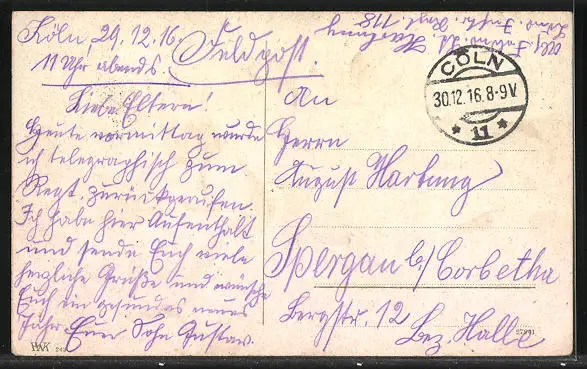 Köln, 29.12.16.
11 Uhr abends.
Feldpost.
Liebe Eltern!
Heute vormittag wurde
ich telegraphisch zum
Regt. zurückgerufen.
Ich habe hier Aufenthalt
und sende Euch viele
herzliche Grüße und wünsche
Euch ein gesundes neues
Jahr Euer Sohn Gustav.
Hartung
Regt. 118
CÖLN
30.12.16.8-9V
* 11 *
An
Herrn
August Hartung
Spergau b/Corbetha
Bergstr. 12
Bez. Halle